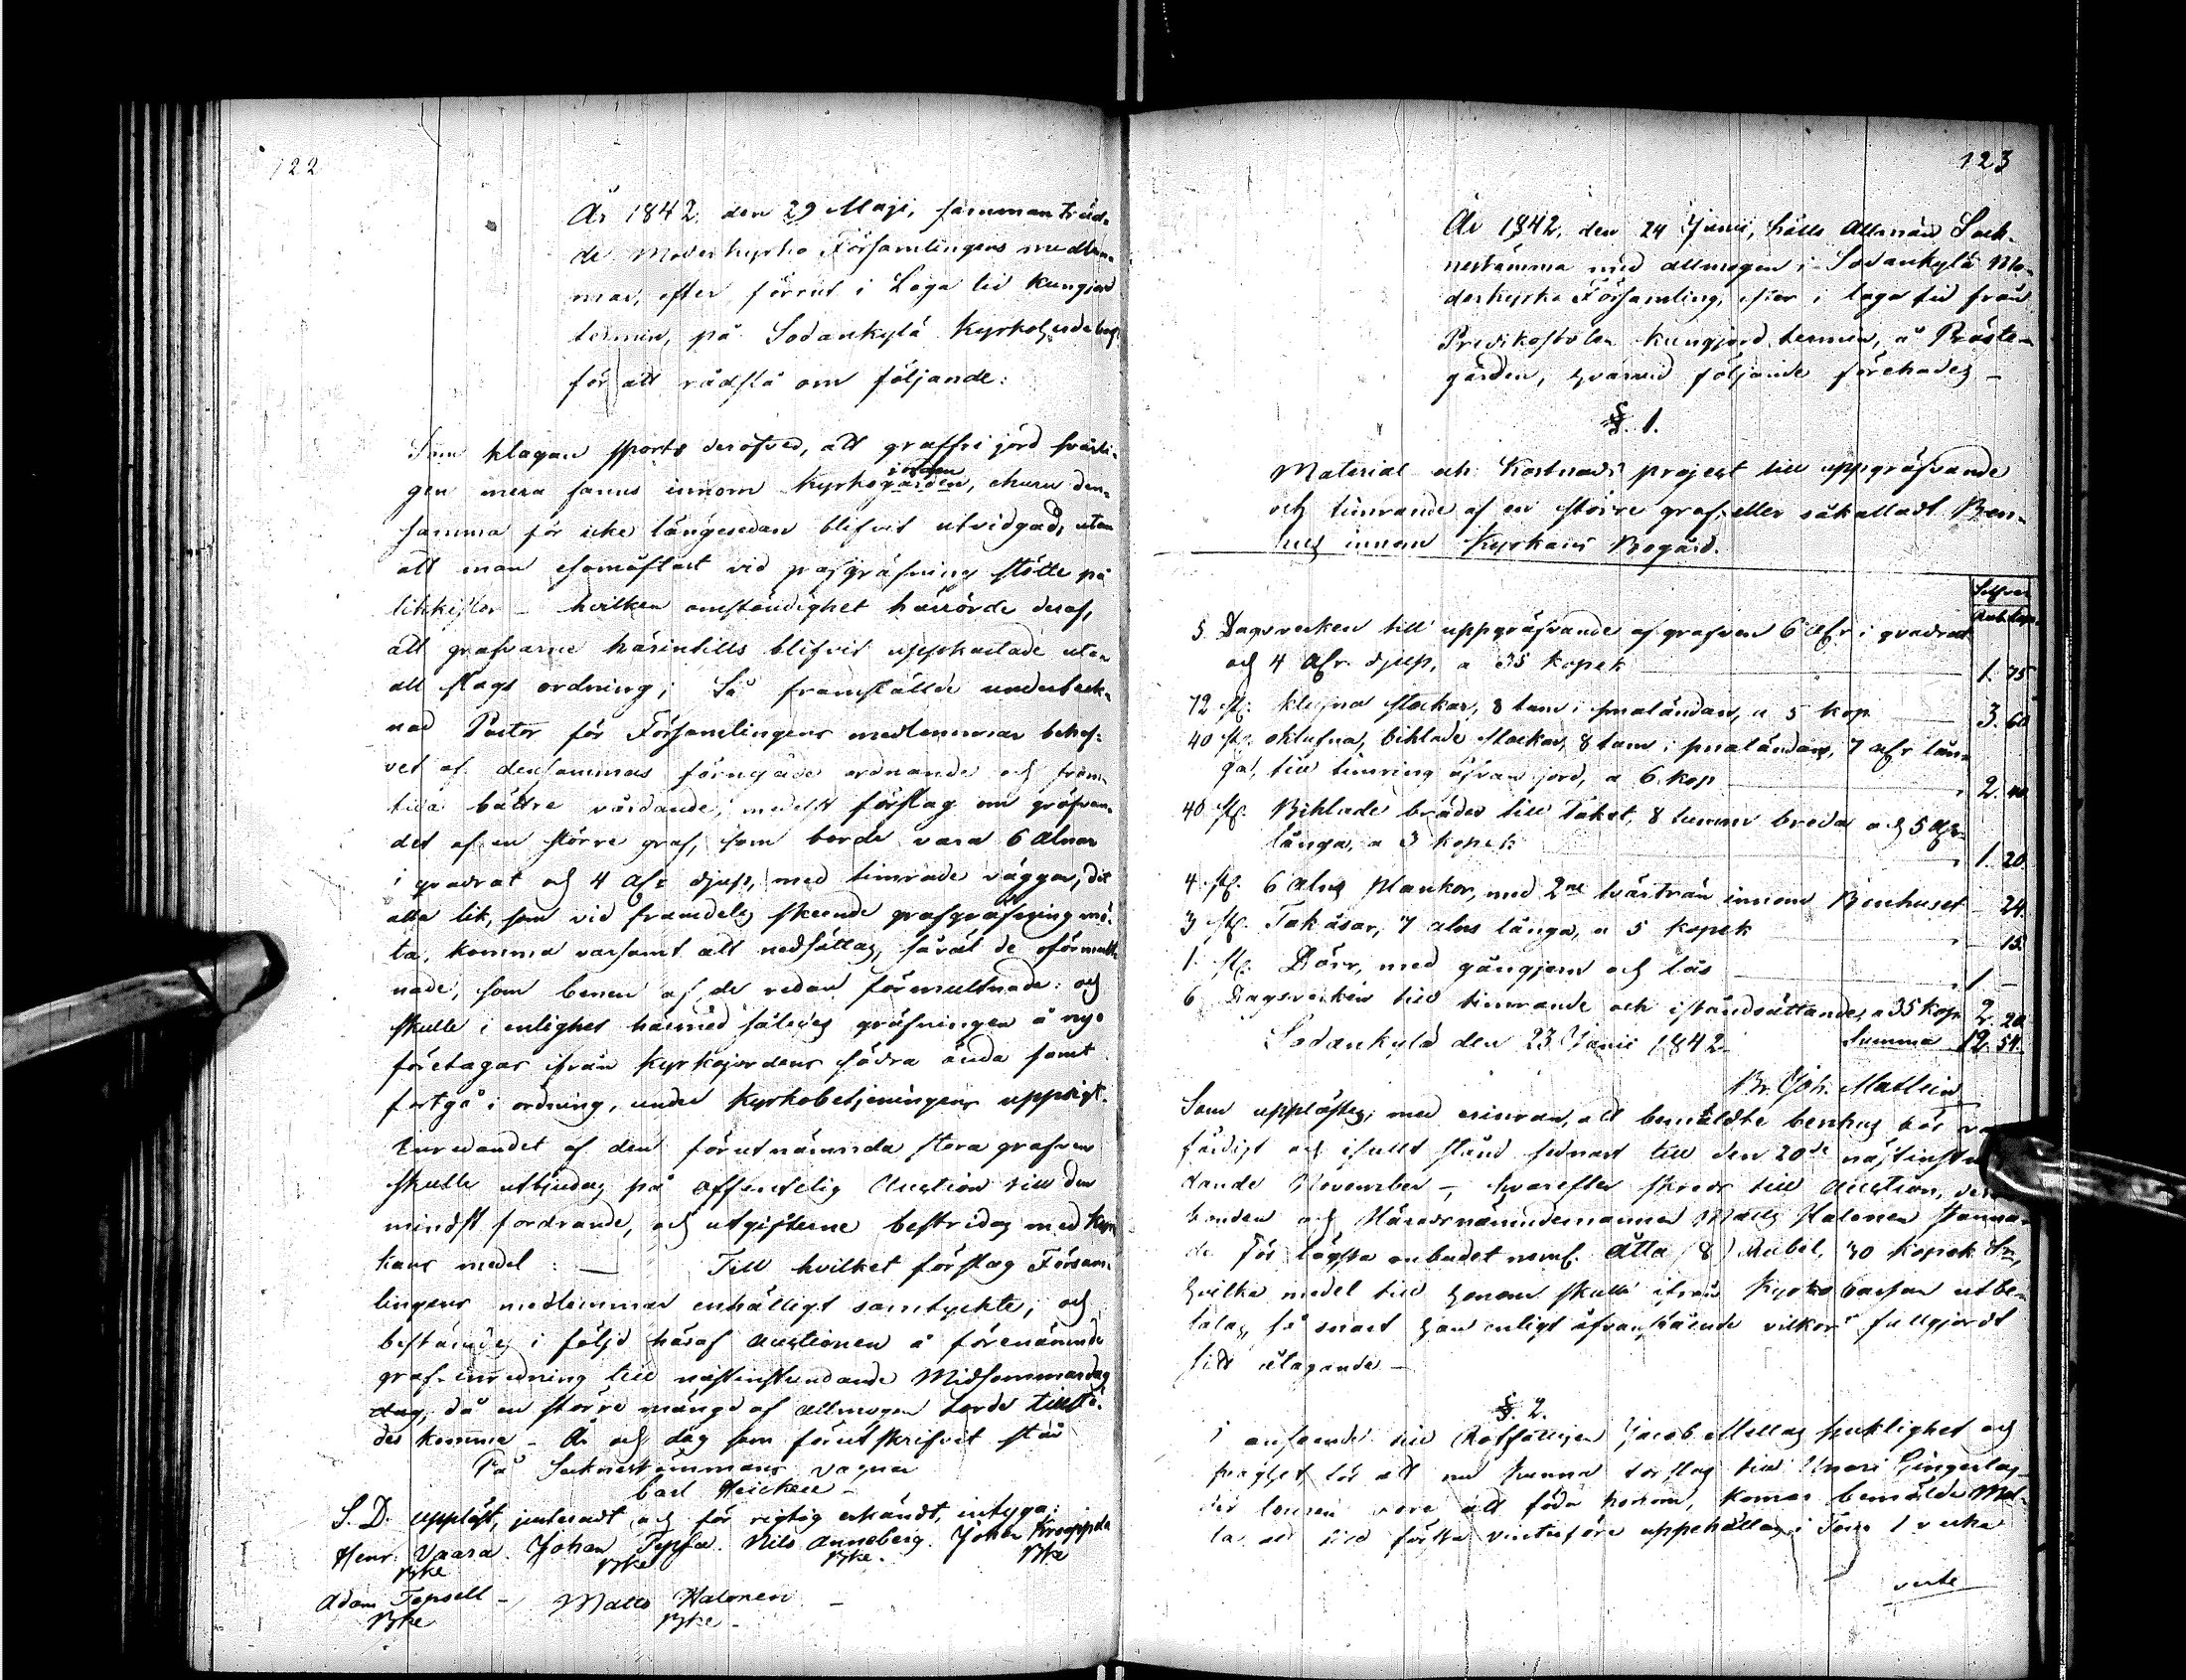 122
År 1842, den 29 Maji, samman träd-
de Moderkyrko Församlingens medlem-
mar, efter förrut i Laga tid kungjord
termin, på Sodankylä Kyrko
för att rådslå om följande:
Som klagan sports deröfver, att graffri jord svårli-
gen mera fanns innom Kyrkogården, jorden ehuru den-
samma för icke längesedan blifvit utvidgad, utan
att man esomoftast vid grafgräfning stötte på
likkistor – hvilken omständighet härrörde deraf,
att grafvarne härintills blifvit uppkastade utan
all slags ordning; Så framställde underteck-
nad Pastor för Församlingens medlemmar behof-
vet af densammas förnyade ordnande och fram-
tida bättre vårdande, medelst förslag om gräfvan-
det af en större graf, som borde vara 6 alnar
i quadrat och 4 alr djup, med timrade väggar, dit
alla lik, som vid framdeles skeende grafgräfning mö-
ta, komma varsamt att nedsättas, såväl de oförmult-
nade, som benen af de redan förmultnade: och
skulle i enlighet härmed således gräfningen å nyo
företagas ifrån Kyrkojordens södra ända samt
fortgå i ordning, under Kyrkobetjeningens uppsigt.
Inredandet af den förutnämnda stora grafven
skulle utbjudas på offentelig Auction till den
mindst fordrande, och utgifterne bestridas med Kyr
kans medel: — Till hvilket förslag Försam-
lingens medlemmar enhälligt samtyckte, och
bestämdes i följd häraf auctionen å förenämnde
graf-inredning till nästinstundande Midsommardag
dag, då en större mängd af allmogen torde tillstä-
des komma – År och dag som förut skrifvet står
På Sockenstämmans vagnar
Carl Heickell
S. D. Uppläst, justeradt och för rigtig erkändt, intyga:
Henr. Vaara. Johan Nils Anneberg. Johan Kreoppila
Bke Bke Bke. Bke
Adam Topsell – Matts Halonen –
Bke Bke –
123
År 1842, den 24 Junii, hölls allmän Sock-
nestämma med allmogen i Sodankylä Mo-
derkyrko Församling, efter i laga tid från
Predikostolen kungjord termin, å Präste-
gården, hvarvid följande förehades –
§. 1.
Material och Kostnads projekt till uppgräfvande
och timrande af en större graf, eller såkalladt Ben-
hus innom Kyrkans Bogård.
Silfver
Rub. Kop.
5 Dagsverken till uppgräfvande af grafven 6 alr i quadrat
och 4 alr. djup, a 35 kopek 1. 75
72 st: klufna stockar, 8 tum i smaländan, a 5 kop 3. 60
40 st: oklufna, bihlade stockar, 8 tum i smaländan, 7 alr lån-
ga, till timring ofvan jord, a 6 kop 2. 40
40 st. Bihlade bräder till Taket, 8 tummer breda och 5 alr
långa, a 3 kopek 1. 20
4. st. 6 alns Plankor, med 2ne tvärträn innom Benhuset – 24.
3 st. Takåsar, 7 alns långa, a 5 kopek – 15.
1 st. Dörr, med gångjern och lås 1 –
6 Dagsverken till timrande och iståndsättande, a 35 kop 2. 20
Sodankylä den 23 Junii 1842. Summa 12. 54.
Br. Joh. Mattein
Som upplästes, med erinran, att bemäldte benhus bör va
färdigt och ifullt stånd sednast till den 20de nästinstun
dande November –, hvarefter skreds till auction,
bonden och Häradsnämndemannen Matts Halonen stanna-
de för lägsta anbudet neml. Åtta (8) Rubel, 30 kopek Sr,
hvilka medel till honom skulle ifrån Kyrko cassan utbe-
talas, så snart han enligt ofvanstående vilkor fullgjordt
sitt åtagande –
§. 2.
I anseende till Rotfattigen Jacob Mellas sjuklighet och
för att nu kunna till Unari
der vore att föda honom, kommer bemälde Mel-
la att till första vinterföre uppehållas i 1 vecka
verte